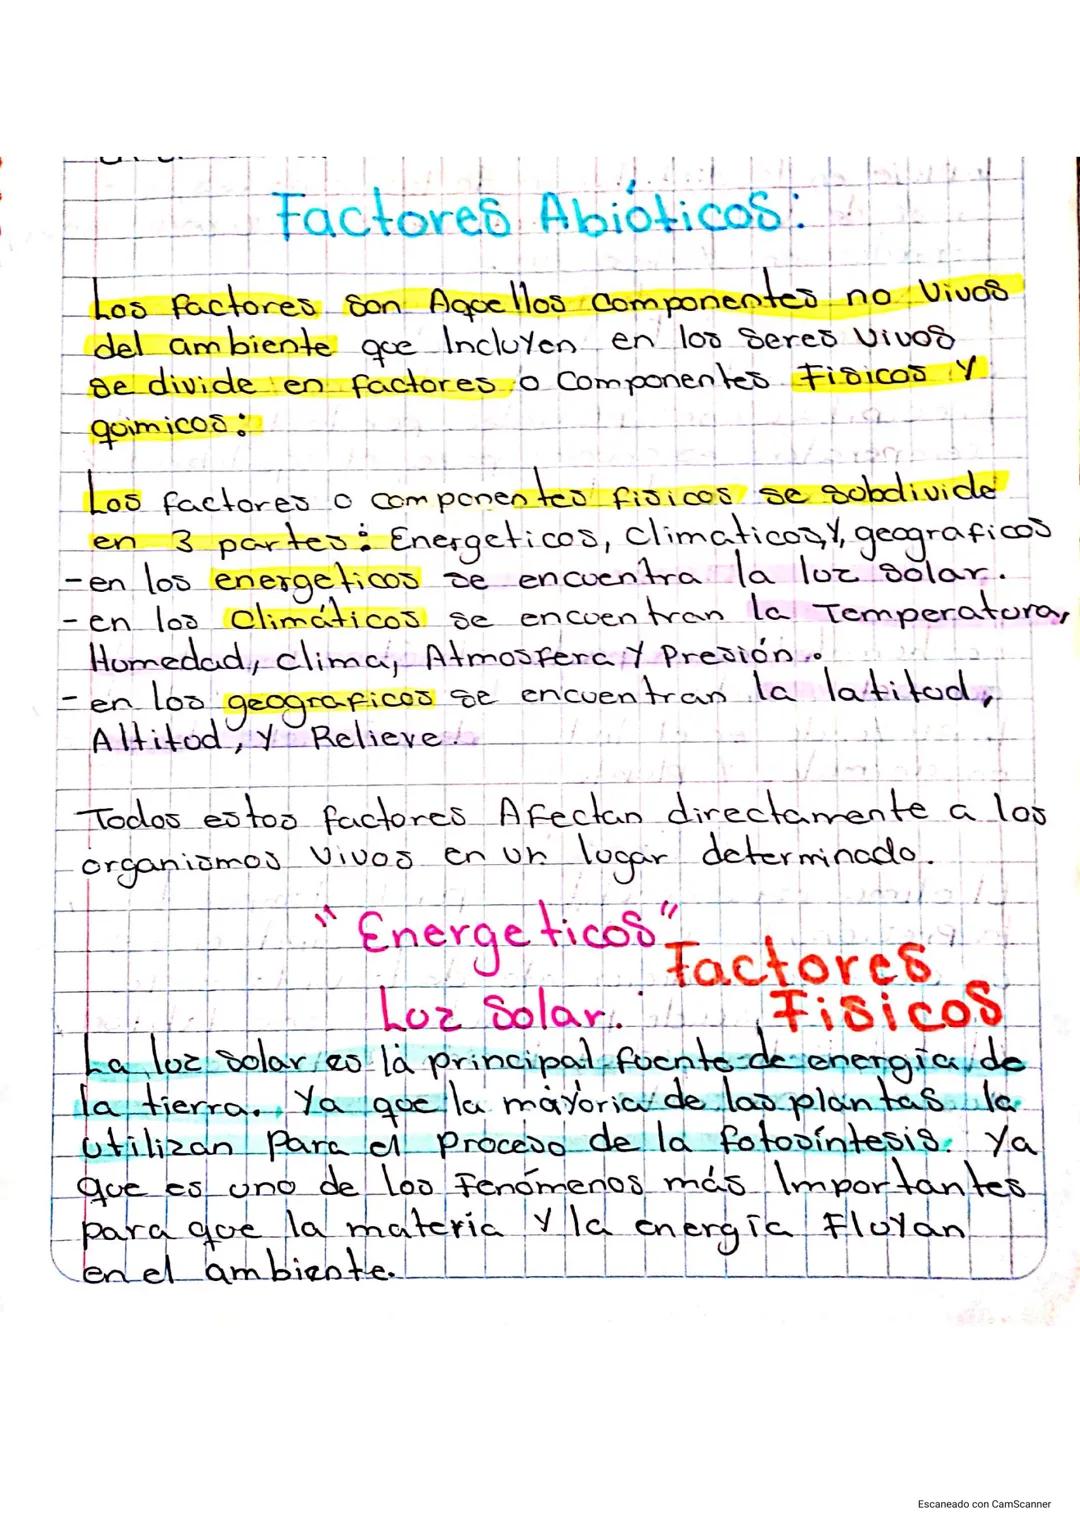 Factores Abióticos:
Los factores son Aquellos componentes no Vivos
del ambiente que Incluyen en los Seres Vivos
se divide en factores o Componentes Fisicos Y
quimicos:
Los factores o componentes fisicos se subdivide
en 3 partes: Energeticos, Climaticos, Y, geograficos
- en los energeticos se encuentra la luz solar.
- en los Climáticos se encuentran la Temperatura,
Humedad, clima, Atmosfera Y Presión.
- en los geograficos se encuentran la latitud,
Altitud, Y Relieve.
Todos estos factores Afectan directamente a los
organismos Vivos en un lugar determinado.
"Energeticos"
Factores
Fisicos
Luz Solar.
La luz solar es la principal fuente de energía de
la tierra. Ya que la mayoria de las plantas la
Utilizan Para el Proceso de la fotosíntesis. Ya
que es uno de los Fenómenos más Importantes
para que la materia Y la energía Fluyan
en el ambiente.
Escaneado con CamScanner